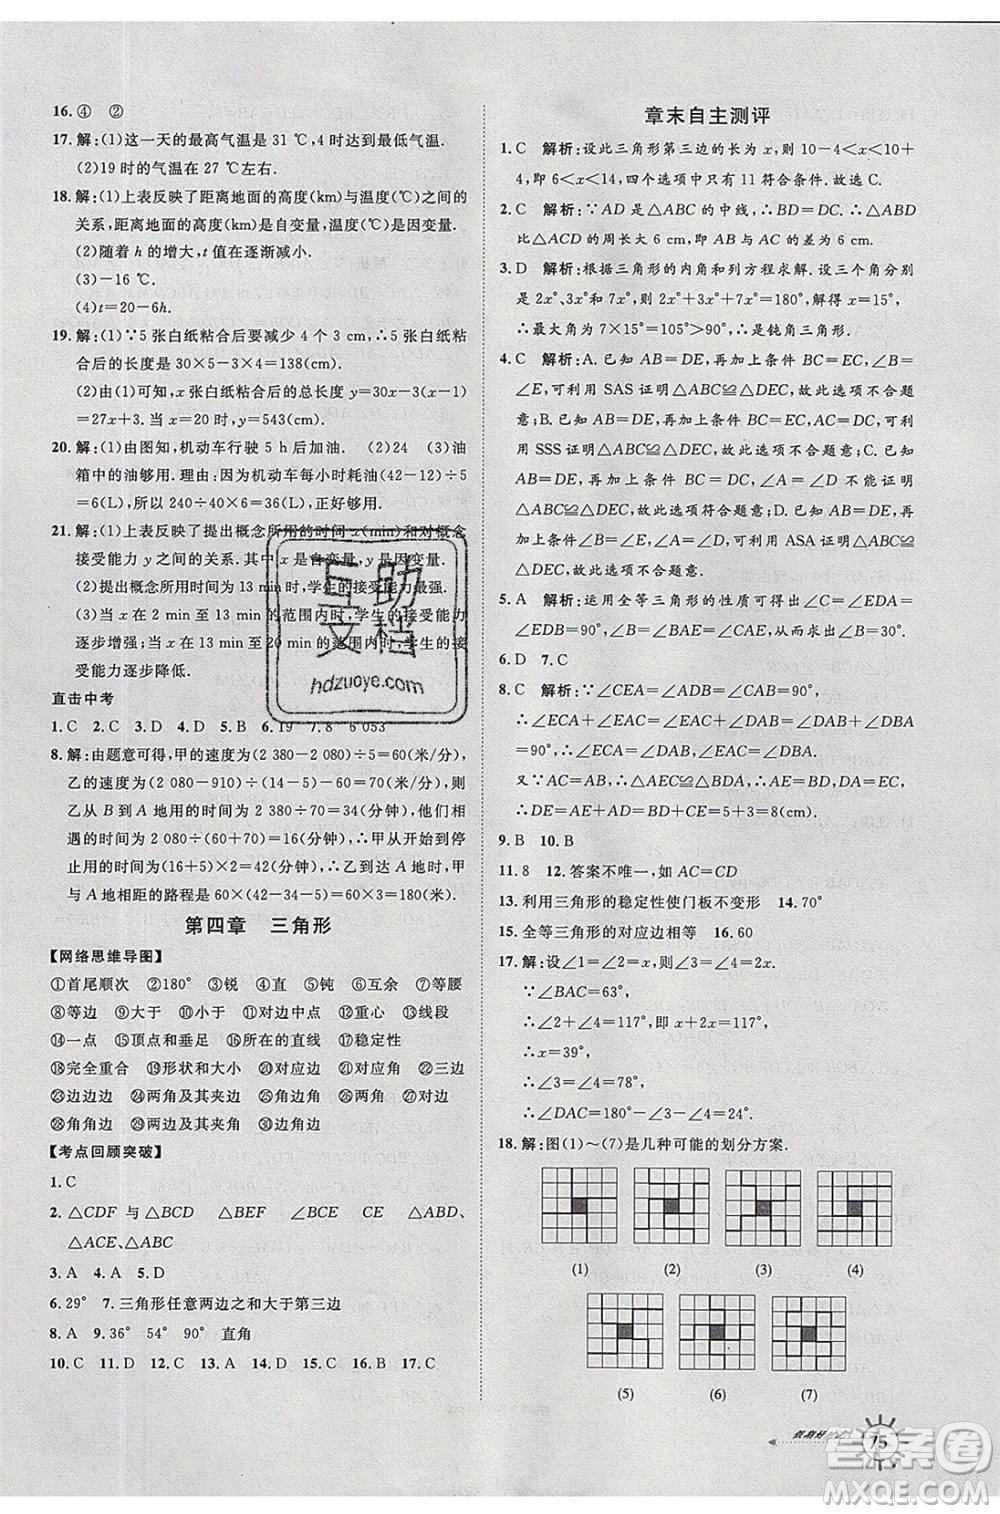 16.④　②
17.解:(1)这一天的最高气温是 31 ℃,4 时达到最低气温.
(2)19 时的气温在 27 ℃左右.
18.解:(1)上表反映了距离地面的高度(km)与温度(℃)之间的
关系,距离地面的高度(km)是自变量,温度(℃)是因变量.
(2)随着 h 的增大,t 值在逐渐减小.
(3)-16 ℃.
(4)t=20-6h.
19.解:(1)∵5 张白纸粘合后要减少 4 个 3 cm,∴5 张白纸粘
合后的长度是 30×5-3×4=138(cm).
(2)由(1)可知,x 张白纸粘合后的总长度 y=30x-3(x-1)
=27x+3.当 x=20 时,y=543(cm).
20.解:(1)由图知,机动车行驶 5 h后加油.　(2)24　(3)油
箱中的油够用.理由:因为机动车每小时耗油(42-12)÷5
=6(L),所以 240÷40×6=36(L),正好够用.
21.解:(1)上表反映了提出概念所用的时间 x(min)和对概念
接受能力 y 之间的关系.其中 x 是自变量,y 是因变量.
(2)提出概念所用时间为 13 min 时,学生的接受能力最强.
(3)当 x 在 2 min 至 13 min 的范围内时,学生的接受能力
逐步增强;当 x 在 13 min 至 20 min 的范围内时,学生的接
受能力逐步降低.
直击中考
1.C　2.C　3.D　4.D　5.B　6.19　7.8　6 053
8.解:由题意可得,甲的速度为(2 380-2 080)÷5=60(米/分),
乙的速度为(2 080-910)÷(14-5)-60=70(米/分),
则乙从 B 到 A 地用的时间为 2 380÷70=34(分钟),他们相
遇的时间为 2 080÷(60+70)=16(分钟),∴甲从开始到停
止用的时间为(16+5)×2=42(分钟),∴乙到达 A 地时,甲
与 A 地相距的路程是 60×(42-34-5)=60×3=180(米).
第四章　三角形
【网络思维导图】
①首尾顺次　②180°　③锐　④直　⑤钝　⑥不等　⑦等腰
⑧等边　⑨大于　⑩小于　⑪对边中点　⑫重心　⑬线段
⑭一点　⑮顶点和垂足　⑯所在的直线　⑰稳定性
⑱完全重合　⑲形状和大小　⑳对应边　㉑对应角　㉒三边
㉓边边边　㉔两角及其夹边　㉕角边角　㉖两角及其对边
㉗角角边　㉘两边及其夹角　㉙边角边
【考点回顾突破】
1.C
2.△CDF 与△BCD　△BEF　∠BCE　CE　△ABD、
△ACE、△ABC
3.A　4.A　5.D
6.29°　7.三角形任意两边之和大于第三边
8.A　9.36°　54°　90°　直角
10.C　11.D　12.C　13.A　14.D　15.C　16.B　17.C
章末自主测评
1.C　解析:设此三角形第三边的长为 x,则 10-4<x<10+
4,即 6<x<14,四个选项中只有 11 符合条件.故选 C.
2.C　解析:∵AD 是△ABC 的中线,∴BD=DC.∴△ABD
比△ACD 的周长大 6 cm,即 AB 与 AC 的差为 6 cm.
3.D　解析:根据三角形的内角和列方程求解.设三个角分别
是 2x°,3x°和 7x°,则 2x+3x+7x=180°,解得 x=15°,
∴最大角为 7×15°=105°>90°,∴是钝角三角形.
4.C　解析:A.已知 AB=DE,再加上条件 BC=EC,∠B=
∠E,可利用 SAS 证明△ABC≌△DEC,故此选项不合题
意;B.已知 AB=DE,再加上条件 BC=EC,AC=DC,可利用
SSS 证明△ABC≌△DEC,故此选项不合题意;C.已知 AB
=DE,再加上条件 BC=DC,∠A=∠D 不能证明△ABC≌
△DEC,故此选项符合题意;D.已知 AB=DE,再加上条件
∠B=∠E,∠A=∠D,可利用 ASA 证明△ABC≌△DEC,
故此选项不合题意.
5.A　解析:运用全等三角形的性质可得出∠A=∠CED=
∠EDB=90°,∠C=∠CBD=∠EDA,从而求出∠C=30°.
6.D　7.C
8.C　解析:∵∠CEA=∠ADB=∠CAB=90°,
∴∠ECA+∠EAC=∠EAC+∠DAB=∠DAB+∠DBA
=90°,∴∠ECA=∠DAB,∠EAC=∠DBA.
又∵AC=AB,∴△AEC≌△BDA,∴AE=BD,AD=CE,
∴DE=AE+AD=BD+CE=5+3=8(cm).
9.B　10.B
11.8　12.答案不唯一,如 AC=CD
13.利用三角形的稳定性使门板不变形　14.70°
15.全等三角形的对应边相等　16.60
17.解:设∠1=∠2=x,则∠3=∠4=2x.
∵∠BAC=63°,
∴∠2+∠4=117°,即 x+2x=117°,
∴x=39°,
∴∠3=∠4=78°,
∴∠DAC=180°-∠3-∠4=24°.
18.解:图(1)~(7)是几种可能的划分方案.
(1)　(2)　(3)　(4)
(5)　(6)　(7)
75
互助
文档
hdzuoye.com
答案卷
MXQE.COM